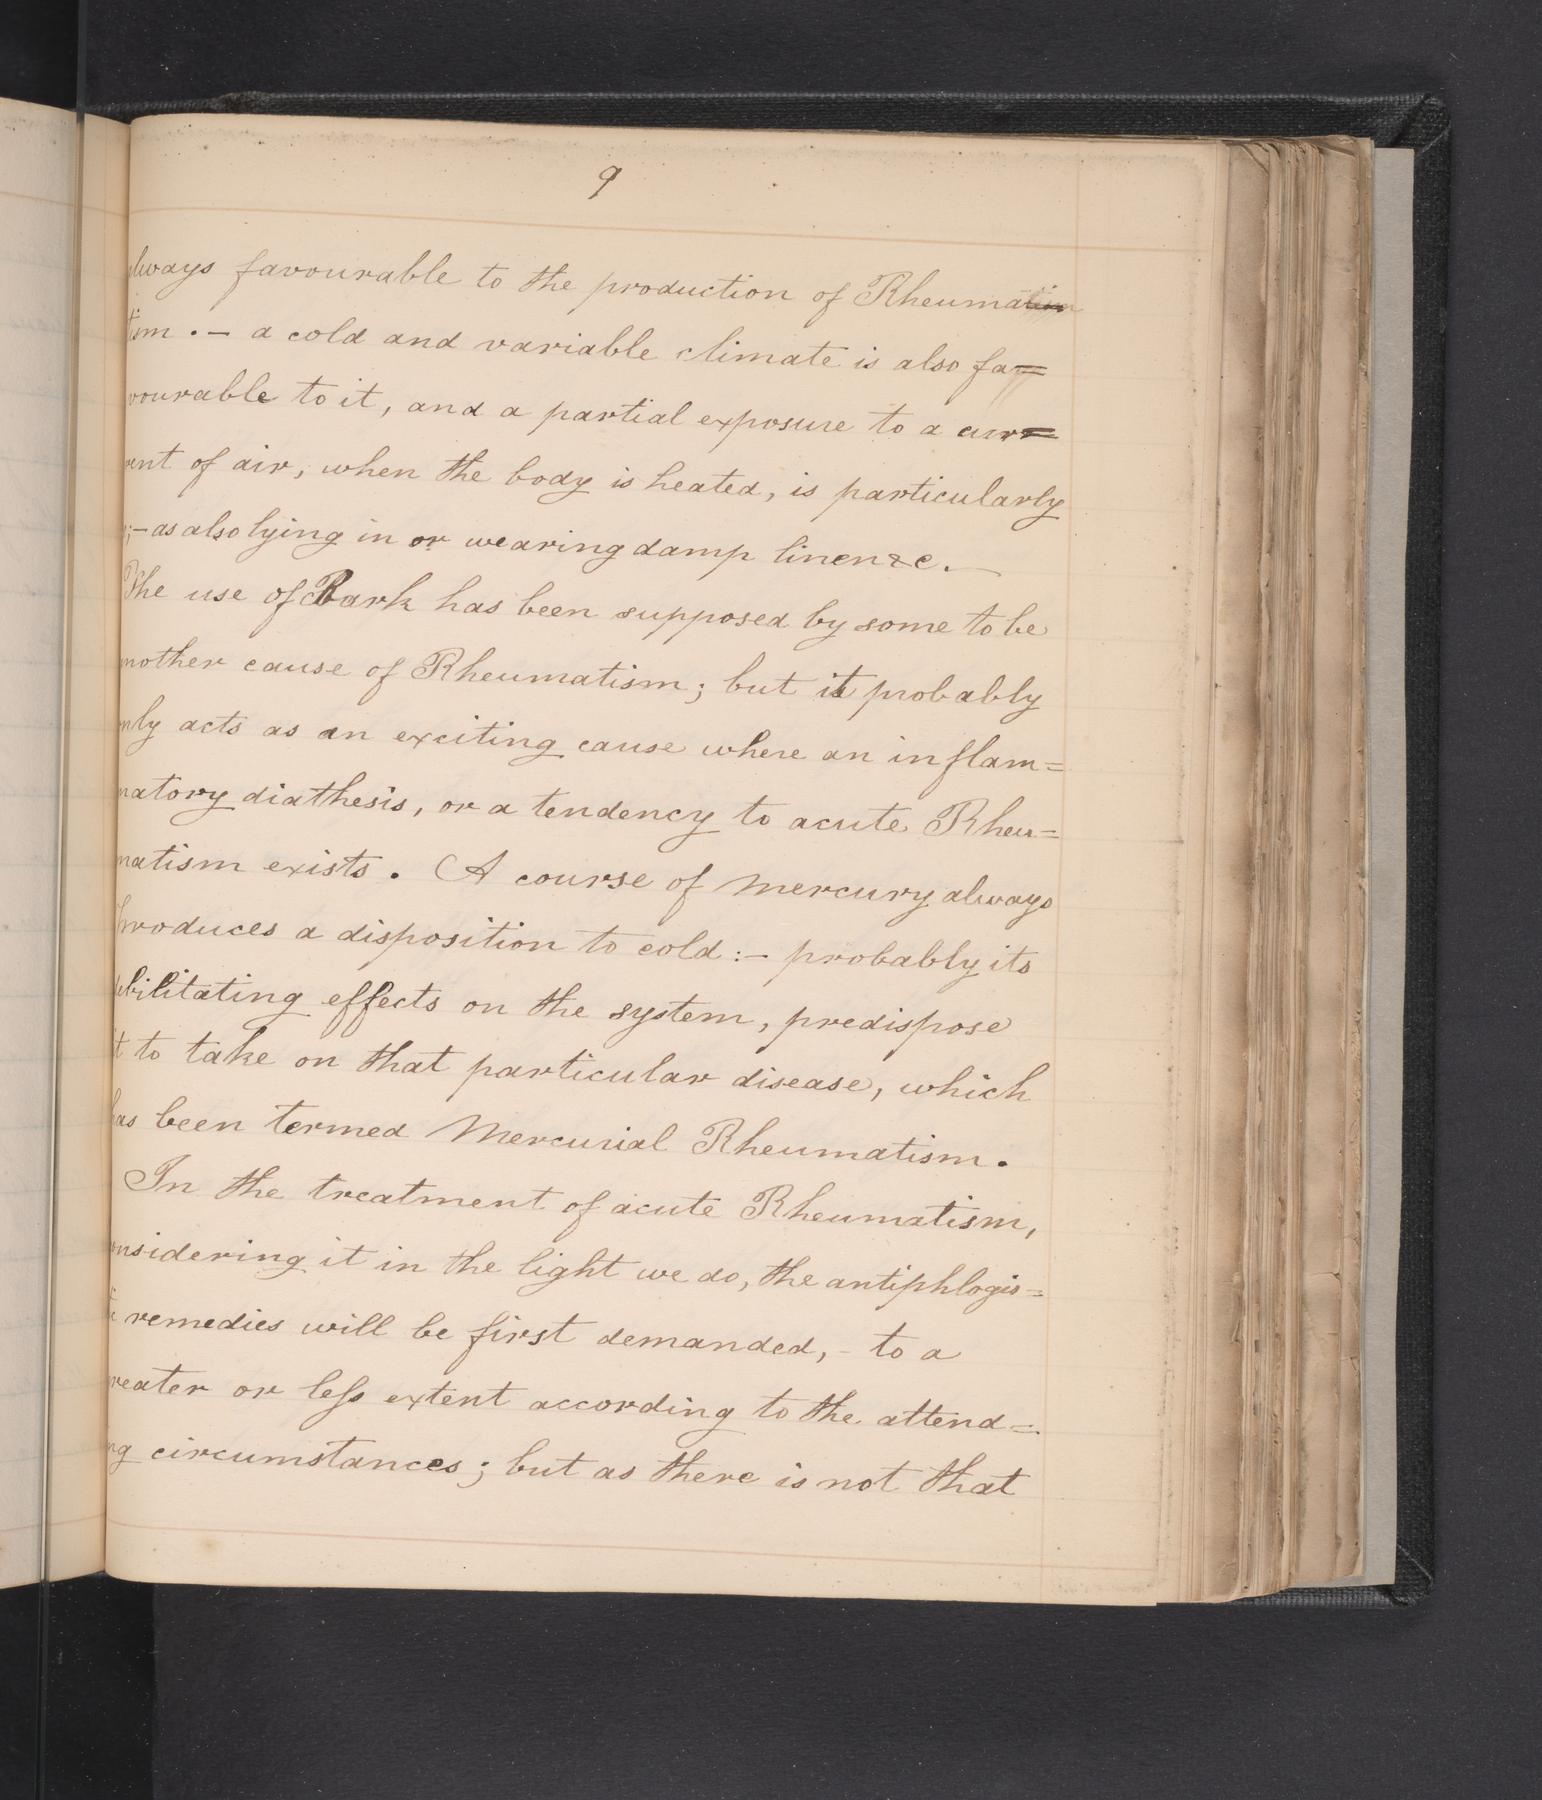 9
always favourable to the production of Rheuma
tism . – a cold and variable climate is also fa=
vourable to it, and a partial exposure to a cur=
rent of air, when the body is heated, is particularly
;– as also lying in or wearing damp linen &c. –
The use of Bark has been supposed by some to be
another cause of Rheumatism; but it probably
only acts as an exciting cause where an inflam=
matory diathesis, or a tendency to acute Rheu=
matism exists . A course of Mercury always
produces a disposition to cold :– probably its
debilitating effects on the system, predispose
it to take on that particular disease, which
has been termed Mercurial Rheumatism.
In the treatment of acute Rheumatism,
considering it in the light we do, the antiphlogis=
tic remedies will be first demanded, – to a
greater or less extent according to the attend=
ing circumstances; but as there is not that